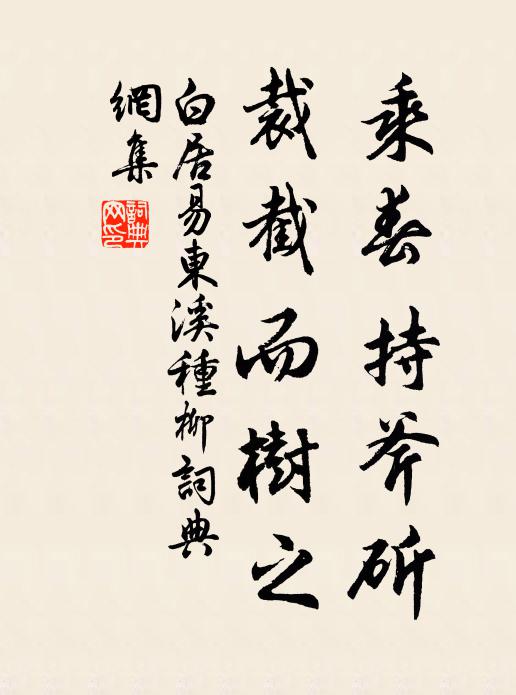 乘春持斧斫
裁截而樹之
白居易東溪種柳詞典
網集
詞典網印